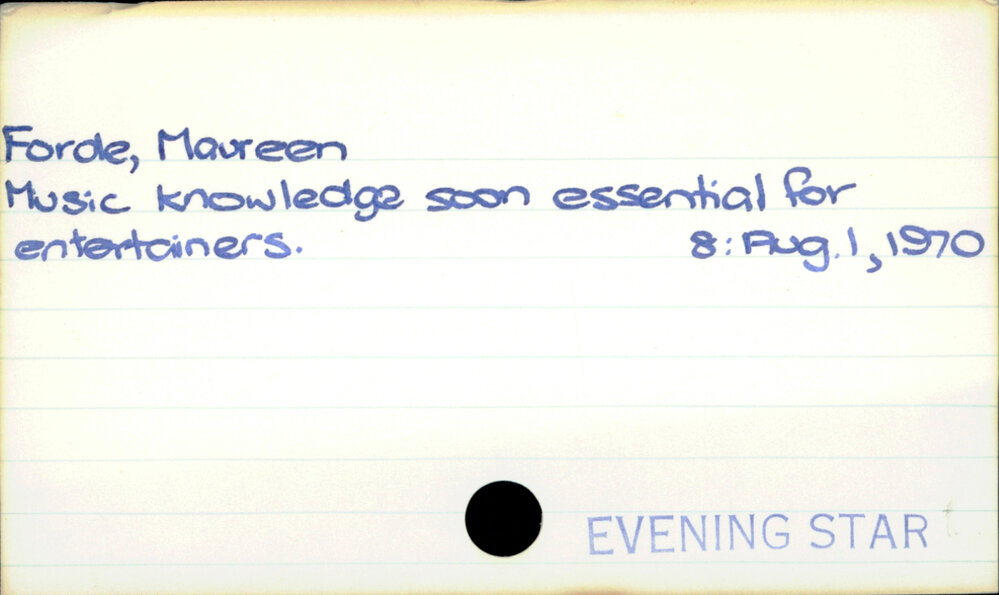 Forde, Maureen
Music knowledge soon essential for
entertainers. 8: Aug. 1, 1970
EVENING STAR